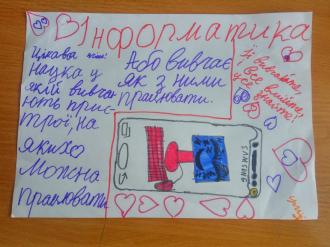 Інформатика
Цікава
наука у
якій вивча
ють прис
трої, на
яких
можна
працювати
Або вивчає
як з ними
працювати.
все
SAMSUNG